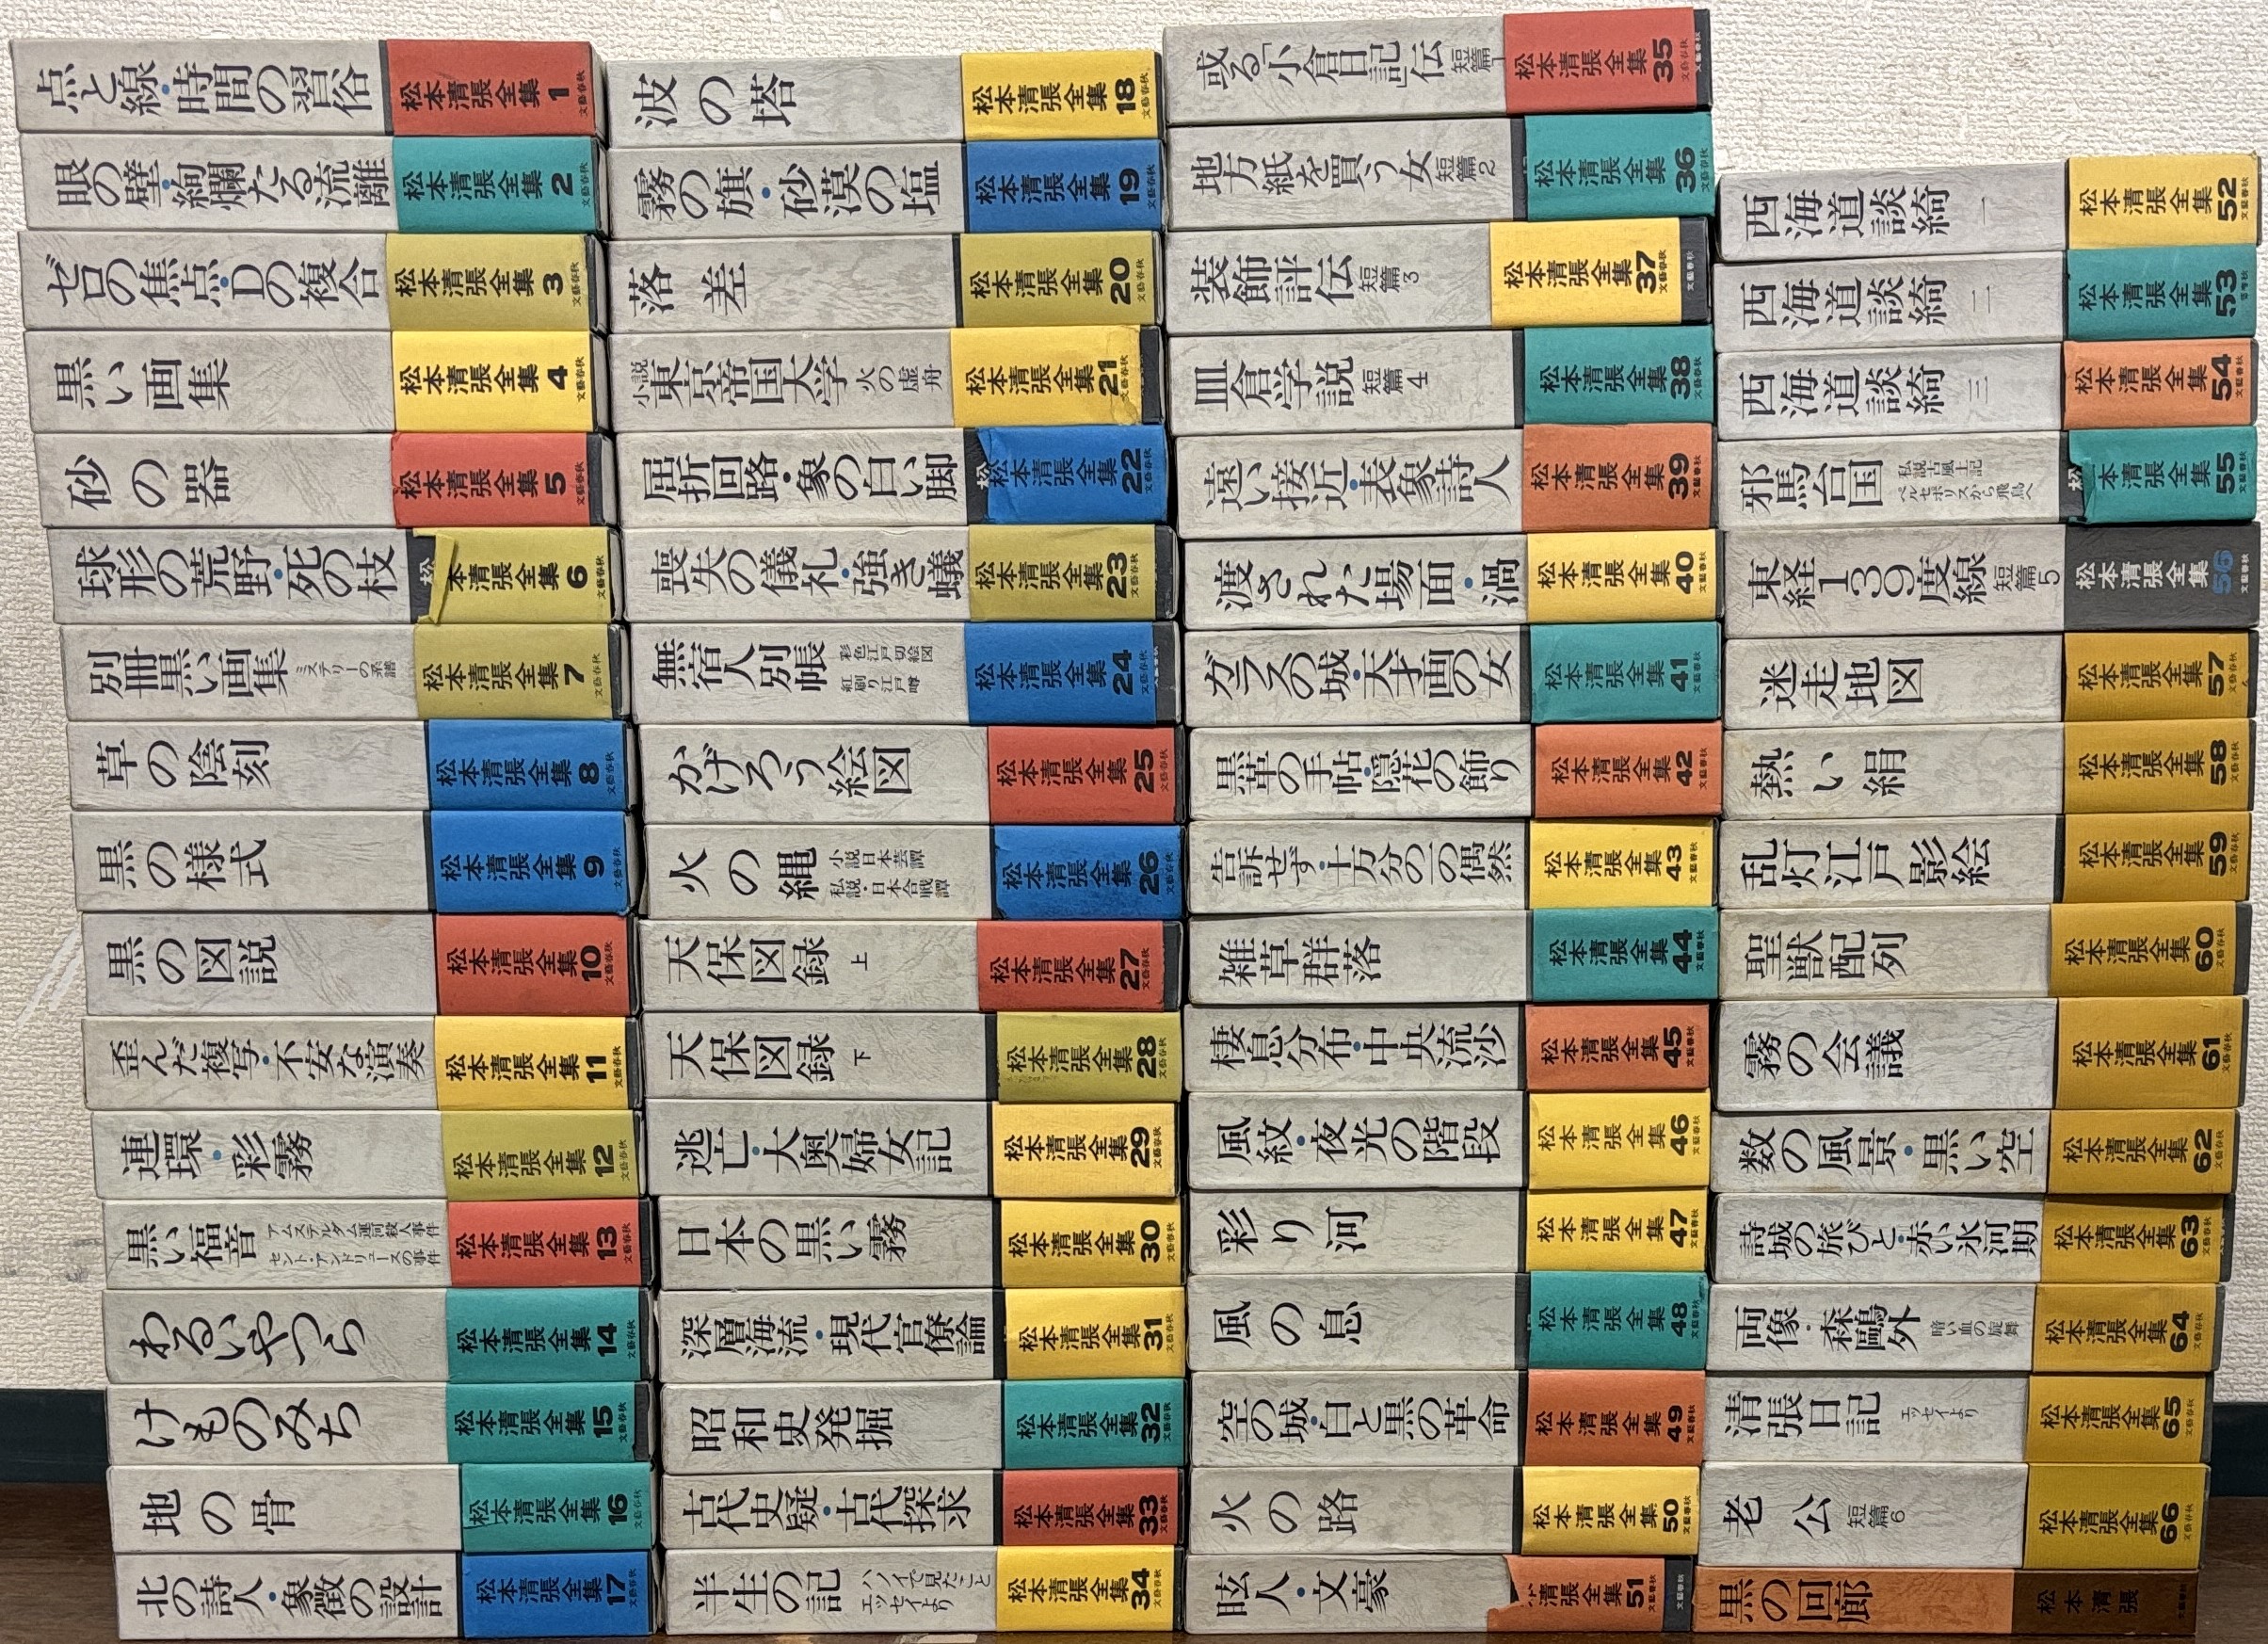 点と線・時間の習俗 松本清張全集 1 文藝春秋
眼の壁・絢爛たる流離 松本清張全集 2 文藝春秋
ゼロの焦点・Dの複合 松本清張全集 3 文藝春秋
黒い画集 松本清張全集 4 文藝春秋
砂の器 松本清張全集 5 文藝春秋
球形の荒野・死の枝 松本清張全集 6 文藝春秋
別冊黒い画集 ミステリーの系譜 松本清張全集 7 文藝春秋
草の陰刻 松本清張全集 8 文藝春秋
黒の様式 松本清張全集 9 文藝春秋
黒の図説 松本清張全集 10 文藝春秋
歪んだ複写・不安な演奏 松本清張全集 11 文藝春秋
連環・彩霧 松本清張全集 12 文藝春秋
黒い福音 アムステルダム運河殺人事件 セント・アンドリュースの事件 松本清張全集 13 文藝春秋
わるいやつら 松本清張全集 14 文藝春秋
けものみち 松本清張全集 15 文藝春秋
地の骨 松本清張全集 16 文藝春秋
北の詩人・象徴の設計 松本清張全集 17 文藝春秋
波の塔 松本清張全集 18 文藝春秋
霧の旗・砂漠の塩 松本清張全集 19 文藝春秋
落差 松本清張全集 20 文藝春秋
小説東京帝国大学 火の虚舟 松本清張全集 21 文藝春秋
屈折回路・象の白い脚 松 松本清張全集 22 文藝春秋
喪失の儀礼・強き蟻 松本清張全集 23 文藝春秋
無宿人別帳 彩色江戸切絵図 紅刷り江戸噂 松本清張全集 24 文藝春秋
かげろう絵図 松本清張全集 25 文藝春秋
火の縄 小説日本芸譚 私説・日本合戦譚 松本清張全集 26 文藝春秋
天保図録 上 松本清張全集 27 文藝春秋
天保図録 下 松本清張全集 28 文藝春秋
逃亡・大奥婦女記 松本清張全集 29 文藝春秋
日本の黒い霧 松本清張全集 30 文藝春秋
深層海流・現代官僚論 松本清張全集 31 文藝春秋
昭和史発掘 松本清張全集 32 文藝春秋
古代史疑・古代探求 松本清張全集 33 文藝春秋
半生の記 ハノイで見たこと エッセイより 松本清張全集 34 文藝春秋
或る「小倉日記」伝 短篇1 松本清張全集 35 文藝春秋
地方紙を買う女 短篇2 松本清張全集 36 文藝春秋
装飾評伝 短篇3 松本清張全集 37 文藝春秋
皿倉学説 短篇4 松本清張全集 38 文藝春秋
遠い接近・表象詩人 松本清張全集 39 文藝春秋
渡された場面・渦 松本清張全集 40 文藝春秋
ガラスの城・天才画の女 松本清張全集 41 文藝春秋
黒革の手帖・隠花の飾り 松本清張全集 42 文藝春秋
告訴せず・十万分の一の偶然 松本清張全集 43 文藝春秋
雑草群落 松本清張全集 44 文藝春秋
棲息分布・中央流沙 松本清張全集 45 文藝春秋
風紋・夜光の階段 松本清張全集 46 文藝春秋
彩り河 松本清張全集 47 文藝春秋
風の息 松本清張全集 48 文藝春秋
空の城・白と黒の革命 松本清張全集 49 文藝春秋
火の路 松本清張全集 50 文藝春秋
眩人・文豪 清張全集 51 文藝春秋
西海道談綺 一 松本清張全集 52 文藝春秋
西海道談綺 二 松本清張全集 53
西海道談綺 三 松本清張全集 54 文藝春秋
邪馬台国 私説古風土記 ペルセポリスから飛鳥へ 松本清張全集 55 文藝春秋
東経139度線 短篇5 松本清張全集 56 文藝春秋
迷走地図 松本清張全集 57 文藝春秋
熱い絹 松本清張全集 58 文藝春秋
乱灯江戸影絵 松本清張全集 59 文藝春秋
聖獣配列 松本清張全集 60 文藝春秋
霧の会議 松本清張全集 61 文藝春秋
数の風景・黒い空 松本清張全集 62 文藝春秋
詩城の旅びと・赤い氷河期 松本清張全集 63 文藝春秋
両像・森鷗外 暗い血の旋舞 松本清張全集 64 文藝春秋
清張日記 エッセイより 松本清張全集 65 文藝春秋
老公 短篇6 松本清張全集 66 文藝春秋
黒の回廊 松本清張 文藝春秋